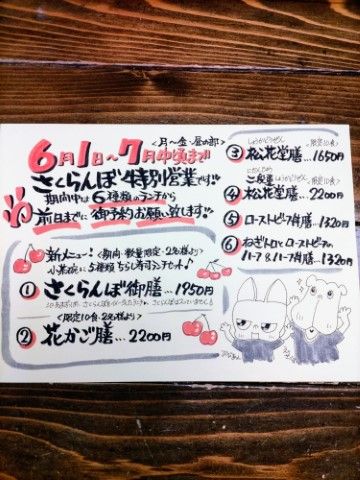 <月～金・昼の部>
6月1日～7月中頃まで
さくらんぼ特別営業です!!
期間中は6種類のランチから
前日までに御予約お願い致します!!
新メニュー! <期間・数量限定・2名様より>
小花碗に5種類ちらし寿司ランチセット♪
① さくらんぼ御膳…1950円
<限定10食・2名様より>
② 花かご膳…2200円
しょうかどうぜん <限定10食>
③ 松花堂膳…1650円
二段重
④ 松花堂膳…2200円
⑤ ローストビーフ丼膳…1320円
⑥ ねぎトロとローストビーフの
ハーフ&ハーフ丼膳…1320円